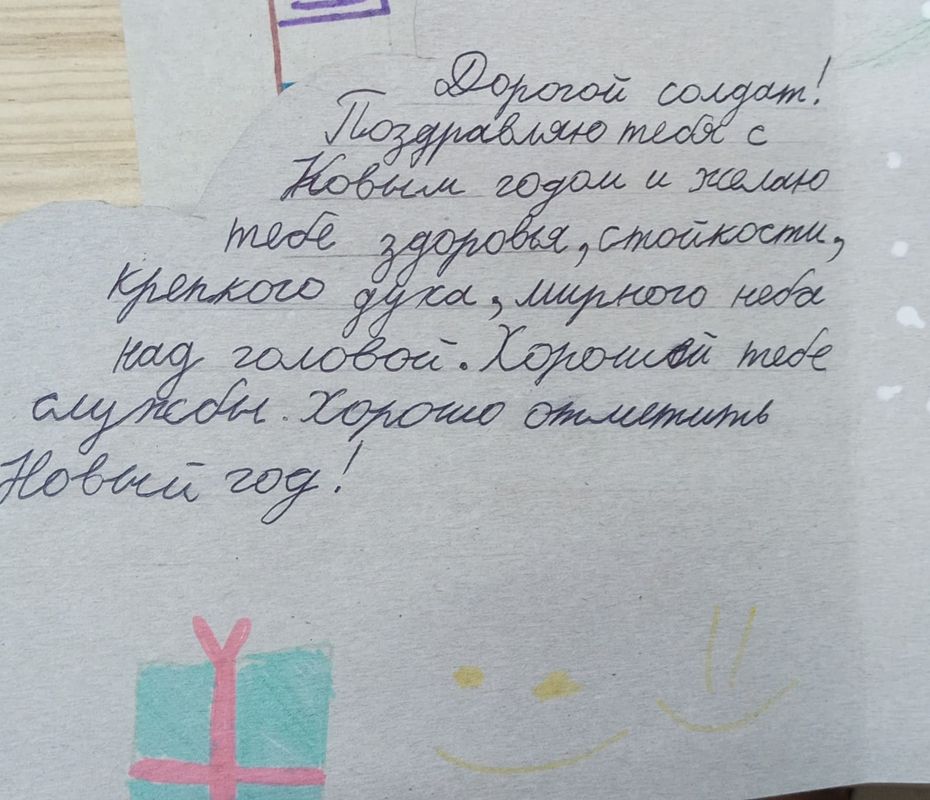 Дорогой солдат!
Поздравляю тебя с
Новым годом и желаю
тебе здоровья, стойкости,
крепкого духа, мирного неба
над головой. Хорошей тебе
службы. Хорошо отметить
Новый год!